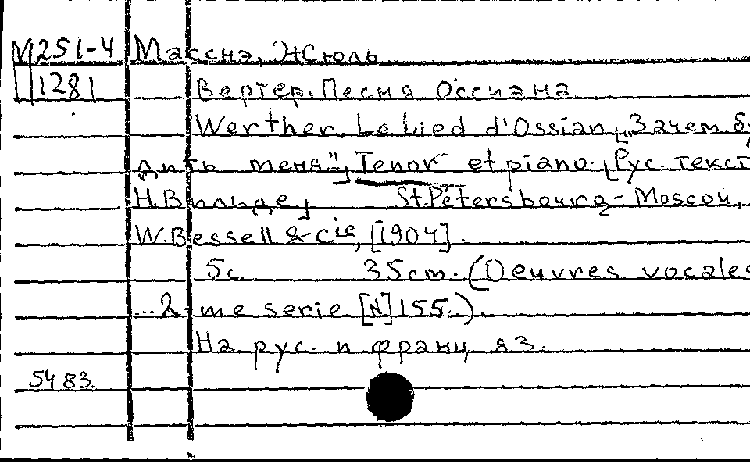 М251-4 Масснэ, Жюль
1281 Вертер. Песня Оссиана
Werther. Le Lied d'Ossian „Зачем бу
дить меня", Tenor et piano. [Рус. текст
Н. Вильде] St. Petersbourg - Moscou,
W. Bessell & Cie, [1904].
5 с. 35 cm. (Oeuvres vocales
... 2-me serie [N] 155.).
На рус. и франц. яз.
5483